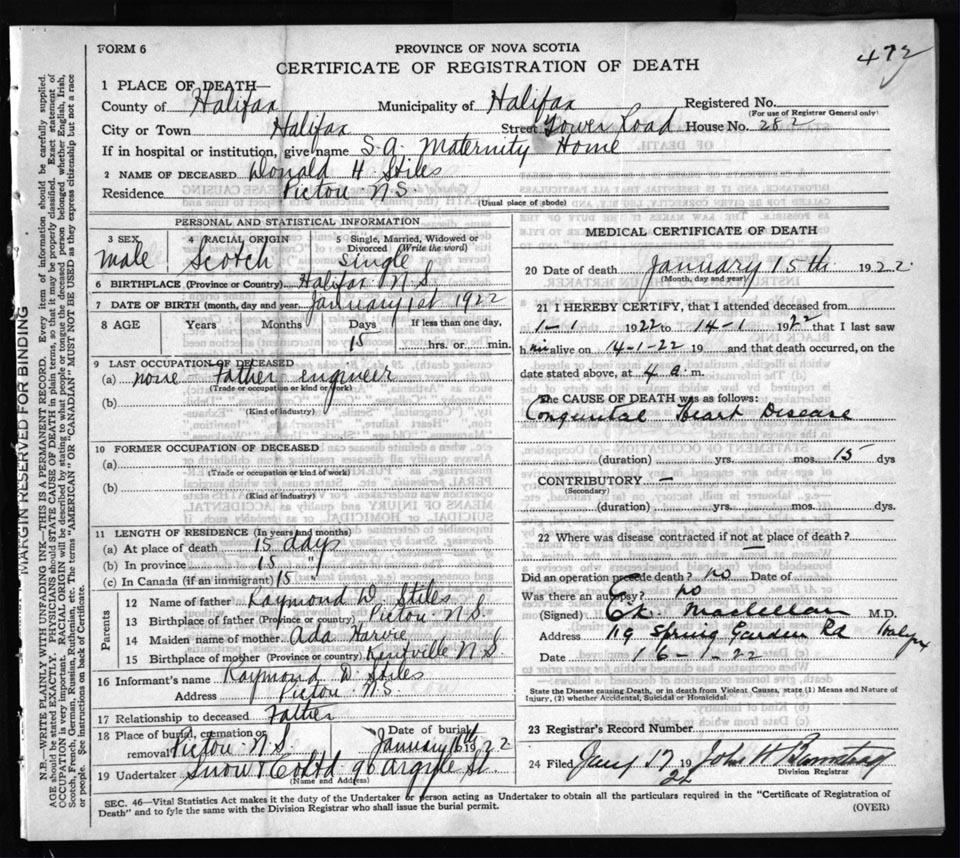 FORM 6
PROVINCE OF NOVA SCOTIA
CERTIFICATE OF REGISTRATION OF DEATH
472
1 PLACE OF DEATH—
County of Halifax Municipality of Halifax Registered No.
(For use of Registrar General only)
City or Town Halifax Street Tower Road House No. 282
If in hospital or institution, give name S.A. Maternity Home
2 NAME OF DECEASED Donald H Stiles
Residence Pictou N.S.
(Usual place of abode)
PERSONAL AND STATISTICAL INFORMATION
3 SEX 4 RACIAL ORIGIN 5 Single, Married, Widowed or Divorced (Write the word)
male Scotch Single
6 BIRTHPLACE (Province or Country) Halifax N.S.
7 DATE OF BIRTH (month, day and year) January 1st 1922
8 AGE Years Months Days If less than one day,
15 hrs. or min.
9 LAST OCCUPATION OF DECEASED
(a) none Father engineer
(Trade or occupation or kind of work)
(b)
(Kind of industry)
10 FORMER OCCUPATION OF DECEASED
(a)
(Trade or occupation or kind of work)
(b)
(Kind of industry)
11 LENGTH OF RESIDENCE (In years and months)
(a) At place of death 15 days
(b) In province 15 "
(c) In Canada (if an immigrant) 15 "
Parents
12 Name of father Raymond D. Stiles
13 Birthplace of father (Province or country) Pictou N.S.
14 Maiden name of mother Ada Harvie
15 Birthplace of mother (Province or country) Kentville N.S
16 Informant's name Raymond D. Stiles
Address Pictou N.S.
17 Relationship to deceased Father
18 Place of burial, cremation or removal Pictou N.S. Date of burial January 16th 1922
19 Undertaker Snow & Co Ltd 90 Argyle St.
(Name and Address)
MEDICAL CERTIFICATE OF DEATH
20 Date of death January 15th 1922
(Month, day and year)
21 I HEREBY CERTIFY, that I attended deceased from
1-1 1922 to 14-1 1922 that I last saw
him alive on 14-1-22 19 and that death occurred, on the
date stated above, at 4 a. m.
The CAUSE OF DEATH was as follows:
Congenital Heart Disease
(duration) yrs. mos. 15 dys
CONTRIBUTORY —
(Secondary)
(duration) yrs. mos. dys.
22 Where was disease contracted if not at place of death?
Did an operation precede death? no Date of
Was there an autopsy? no
(Signed) Maclellan M.D.
Address 119 Spring Garden Rd Halifax
Date 16-1-22
State the Disease causing Death, or in death from Violent Causes, state (1) Means and Nature of
Injury, (2) whether Accidental, Suicidal or Homicidal.
23 Registrar's Record Number
24 Filed Jany 17 19 22 John H
Division Registrar
SEC. 46—Vital Statistics Act makes it the duty of the Undertaker or person acting as Undertaker to obtain all the particulars required in the "Certificate of Registration of
Death" and to fyle the same with the Division Registrar who shall issue the burial permit.
(OVER)
MARGIN RESERVED FOR BINDING
N.B.—WRITE PLAINLY WITH UNFADING INK—THIS IS A PERMANENT RECORD. Every item of information should be carefully supplied.
AGE should be stated EXACTLY. PHYSICIANS should STATE CAUSE OF DEATH in plain terms, so that it may be properly classified. Exact statement of
OCCUPATION is very important. RACIAL ORIGIN will be described by stating to what people or tongue the deceased person belonged whether English, Irish,
Scotch, French, German, Russian, Ruthenian, etc. The terms "AMERICAN" OR "CANADIAN" MUST NOT BE USED as they express citizenship but not a race
or people. See instructions on back of Certificate.